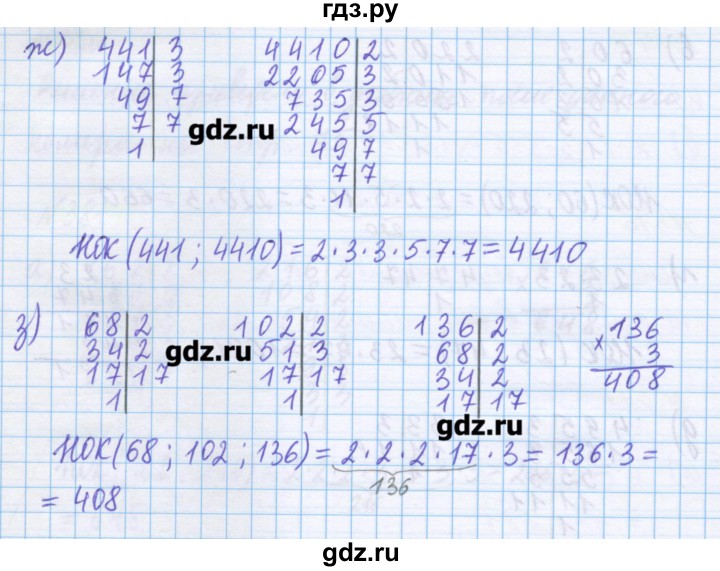 гдз.ру
ж) 441 3 4410 2
147 3 2205 3
49 7 735 3
7 7 245 5
1 49 7
7 7
1
gdz.ru
НОК (441 ; 4410) = 2·3·3·5·7·7 = 4410
з) 68 2 102 2 136 2 × 136
34 2 51 3 68 2 3
17 17 17 17 34 2 408
1 1 17 17
gdz.ru
gdz.ru
НОК (68 ; 102 ; 136) = 2·2·2·17·3 = 136·3 =
136
= 408
gdz.ru